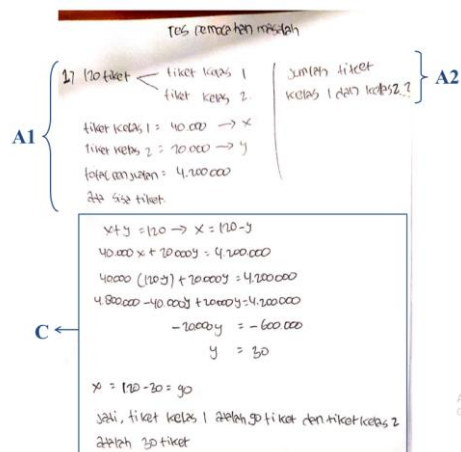 Tes Pemecahan masalah
A1
A2
1) 120 tiket
tiket kelas 1
tiket kelas 2
Jumlah tiket
kelas 1 dan kelas 2 ?
tiket kelas 1 = 40.000 → x
tiket kelas 2 = 20.000 → y
total penjualan = 4.200.000
ada sisa tiket.
C
x + y = 120 → x = 120-y
40.000 x + 20000y = 4.200.000
40000 (120-y) + 20000y = 4.200.000
4.800000 - 40.000y + 20000y = 4.200000
-20000y = -600.000
y = 30
x = 120 - 30 = 90
Jadi, tiket kelas 1 adalah 90 tiket dan tiket kelas 2
adalah 30 tiket